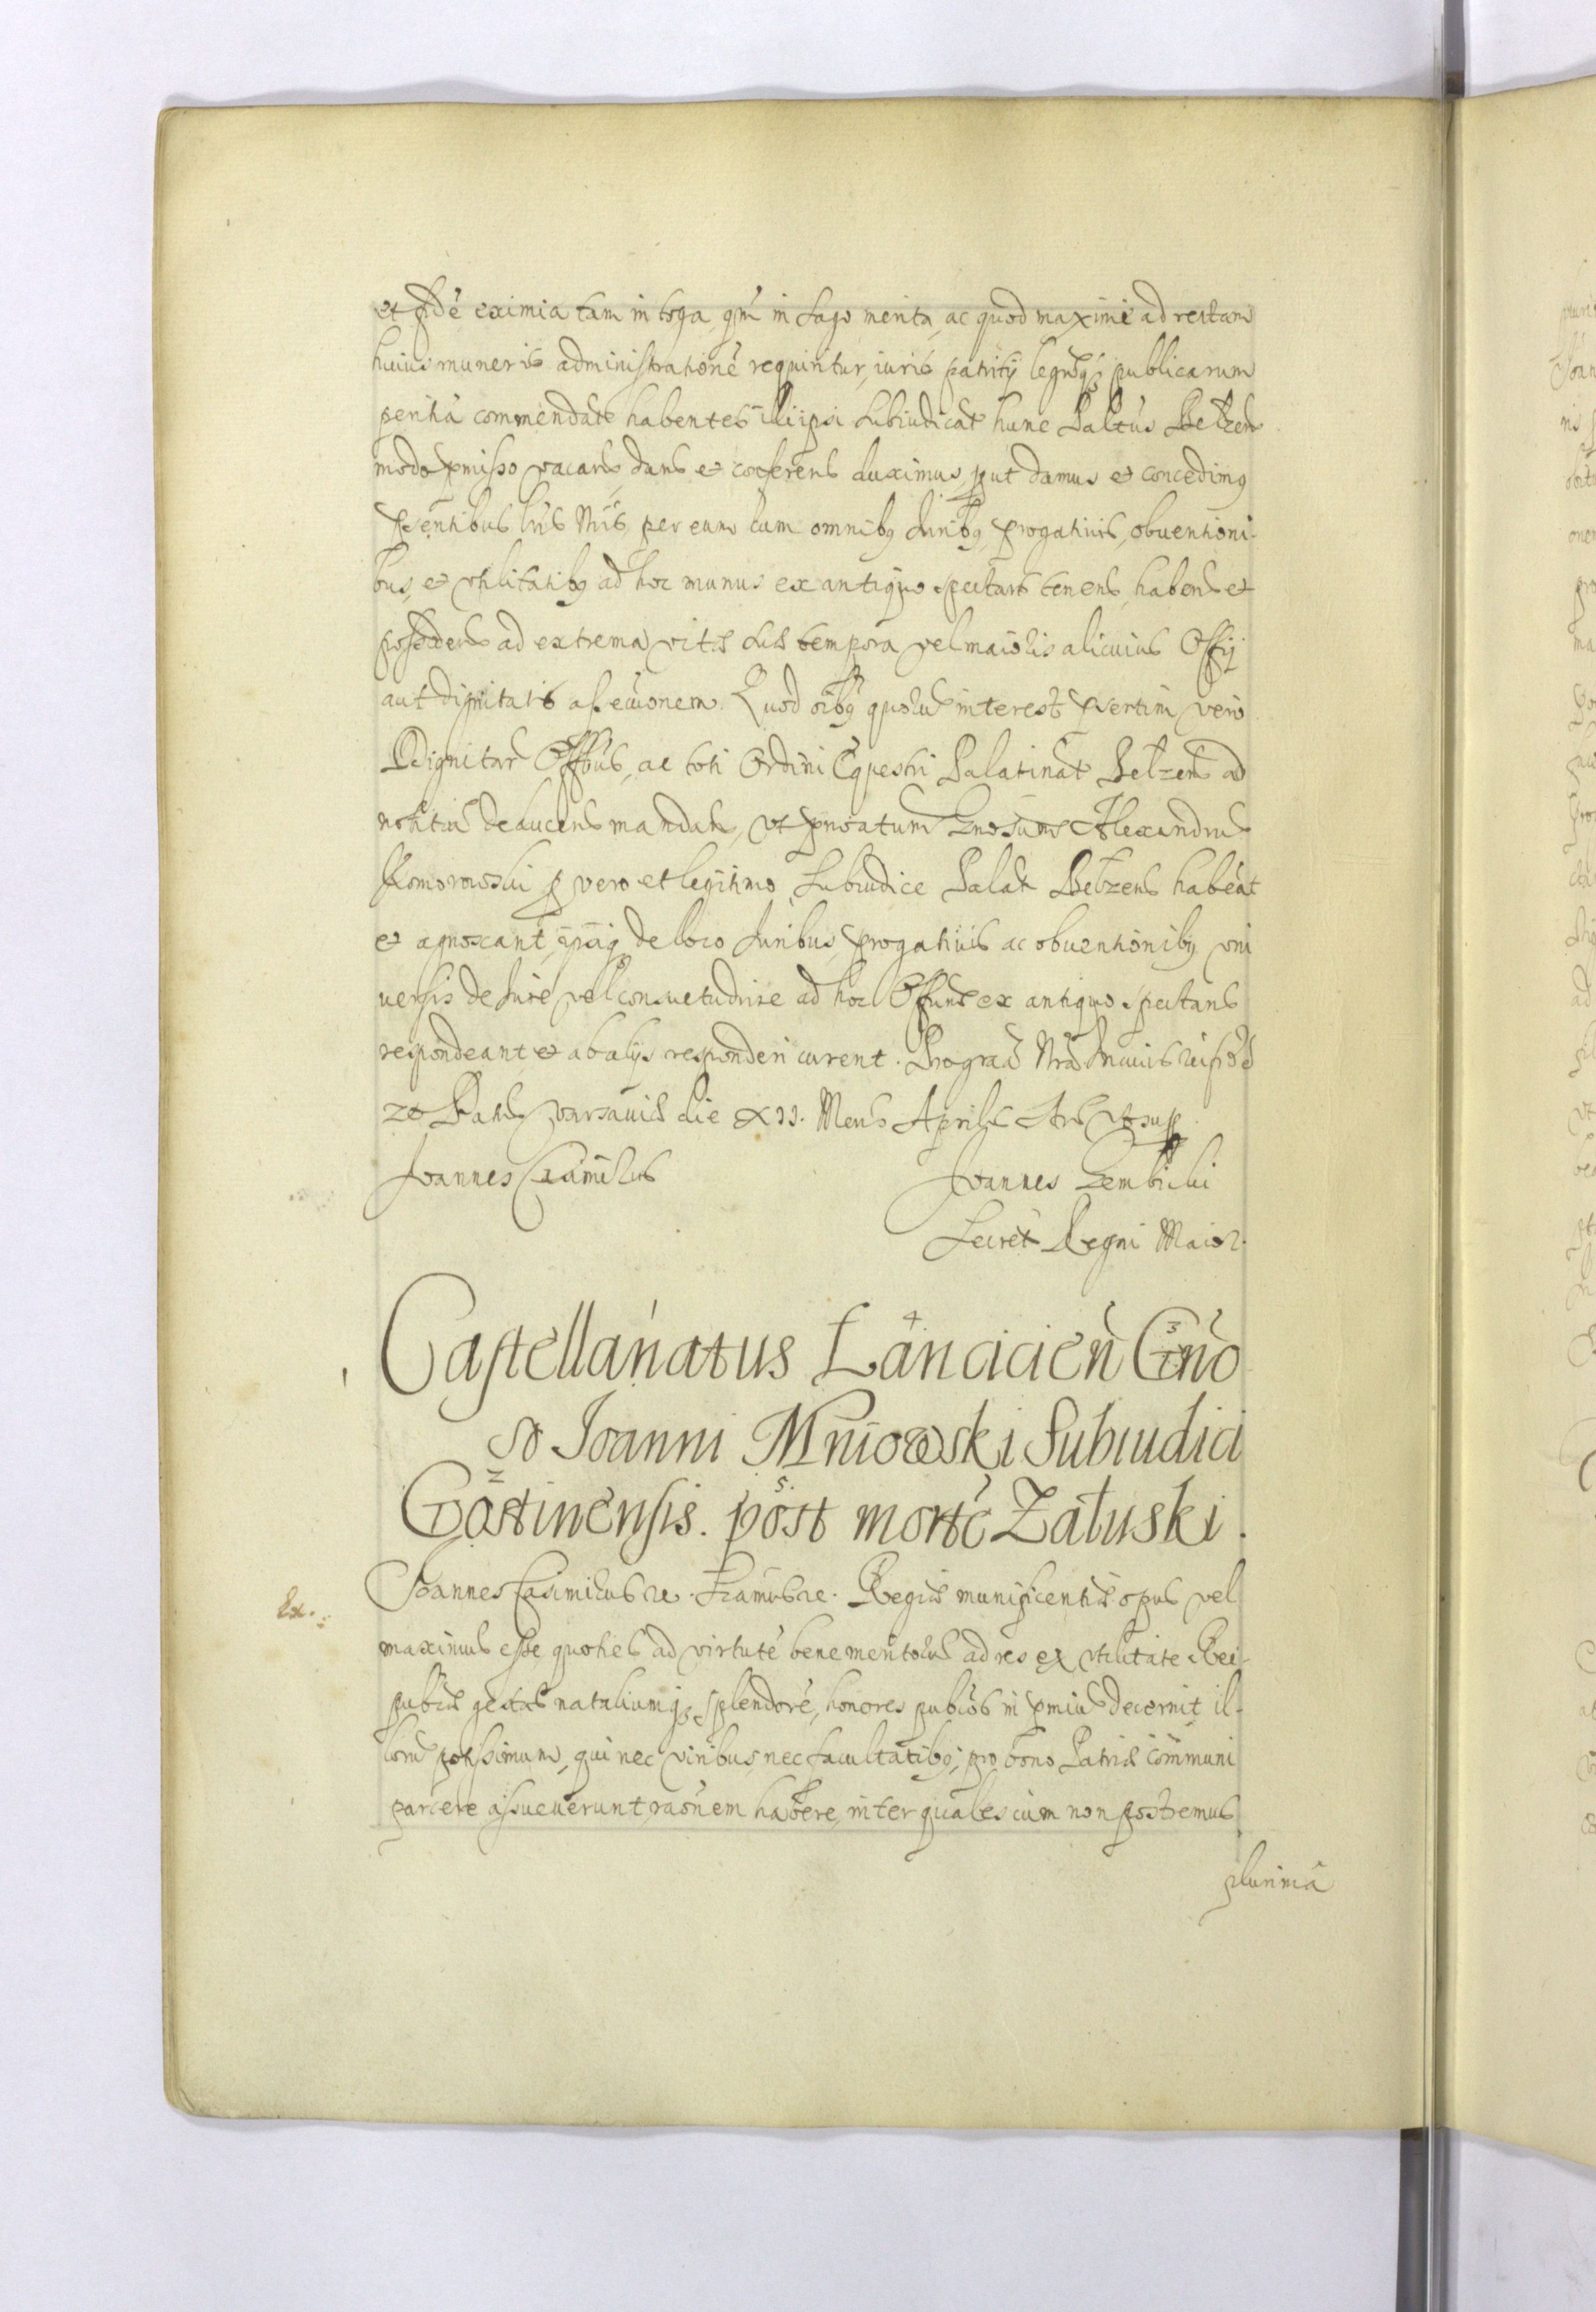 et fidē eximia tam in toga qm̄ in sago merita, ac quod maximè ad rectam
huius muneris administrationē requiritur, iuris patrij legūq; publicarum
peritiā commendatē habentes illi ipsi Subiudicat hunc Palatūs Belzen
modo pmisso vacans dans et conferens duximus, put damus et concedimq
pntibus lris Nris per eum cum omnibq Juribq progatiuis, obuentioni-
bus, et vtilitatibq ad hoc munus ex antiquo spectans tenens, habens et
possidens ad extrema vitæ suæ tempora vel maioris alicuius Offij
aut dignitatis assecuonem. Quod oibq quorū interest psertim vero
Dignitar Offbus, ac toti Ordini Equestri Palatinat Belzens ad
notitiā deducens mandam, vt pnoatum Gnosum Alexandrū
Komorowski p vero et legitimo Subiudice Palat Belzens habeāt
et agnoscant, ipiq de loco Juribus progatiuis ac obuentionibq vni
uersis de Jure vel consuetudine ad hoc Offium ex antiquo spectans
respondeant et ab alijs responderi curent. Pro graā Nrā
Varsauiæ die XII. Mens Aprilis Ao vt sup
Joannes Casimirus Joannes Gembicki
Secret Regni Maior.
Castellanatus Lancicien Gno
so Joanni Mniowski Subiudici
Gostinensis. post mortē Załuski.
Ex.
Joannes Casimirus re. Regiæ munificentiæ opus vel
maximus esse, quoties ad virtutē bene meritorū ad res ex vtilitate Rei-
pubcæ gestas nataliumq; splendorē, honores pubcos in pmiū decernit, il-
lorū potissimum, qui nec viribus, nec facultatibq; pro bono Patriæ communi
parcere assueuerunt, raonem habere, inter quales cum non postremus
plurimā